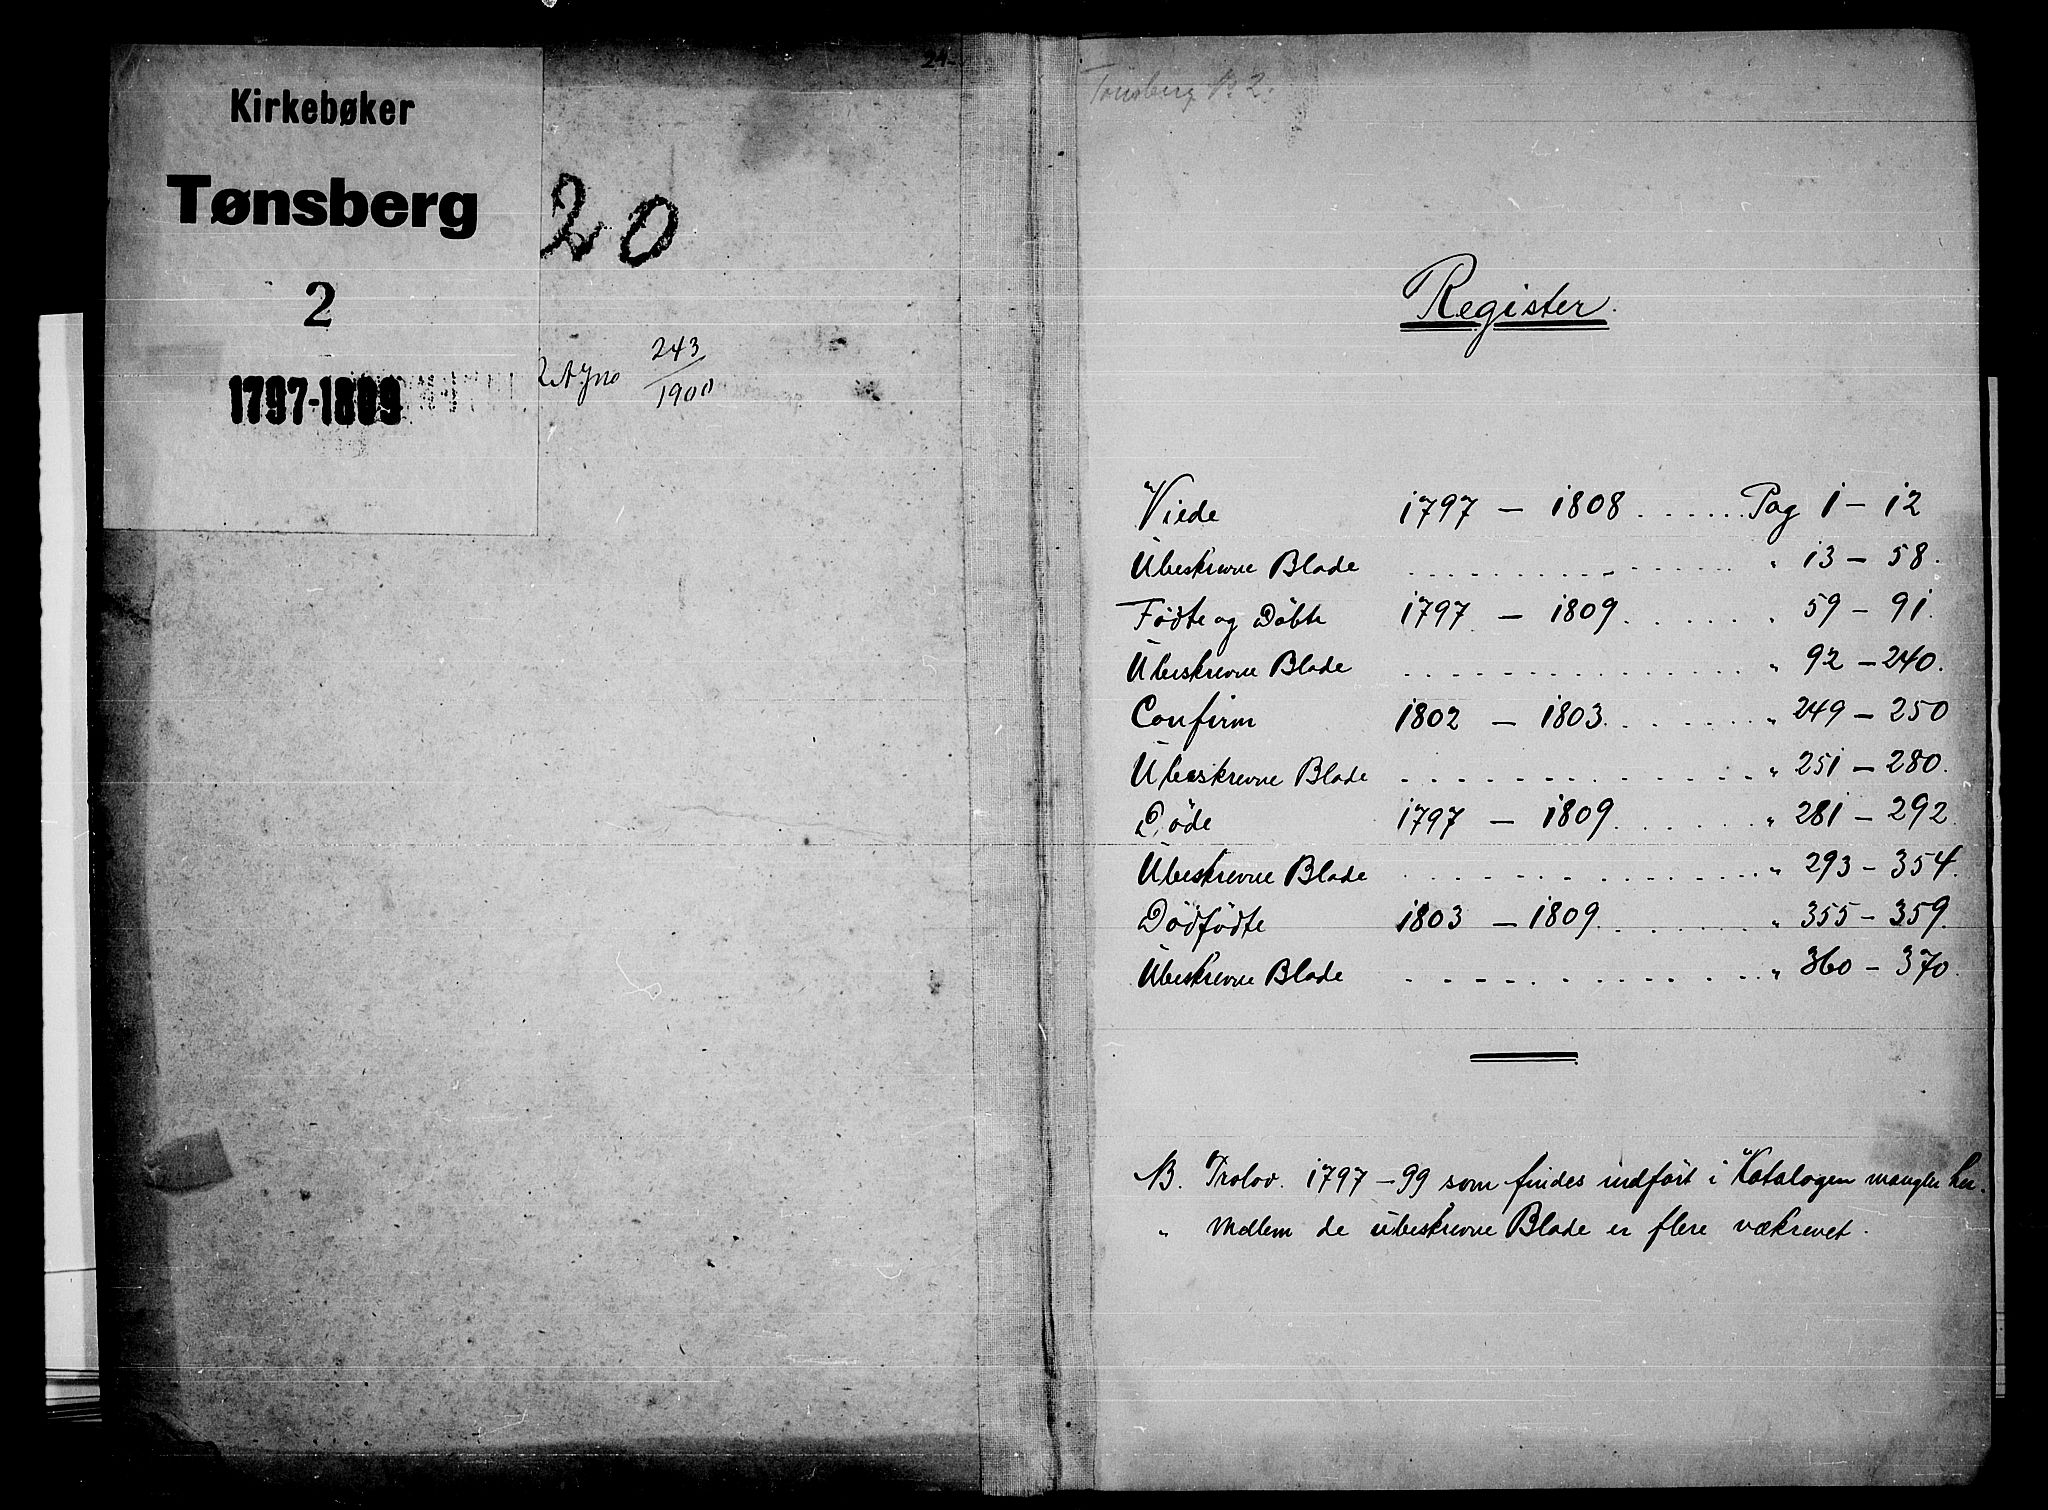 24
Kirkebøker
Tønsberg
2
1797-1809
20
243
1900
Tønsberg 2.
Register.
Viede 1797 – 1808 ...... Pag 1 – 12
Ubeskrevne Blade .......... " 13 – 58.
Födte og Döbte 1797 – 1809 ...... " 59 – 91.
Ubeskrevne Blade .......... " 92 – 240.
Confirm 1802 – 1803 ...... " 249 – 250
Ubeskrevne Blade .......... " 251 – 280.
Döde 1797 – 1809 ...... " 281 – 292
Ubeskrevne Blade .......... " 293 – 354.
Dödfödte 1803 – 1809 ...... " 355 – 359.
Ubeskrevne Blade .......... " 360 – 370.
NB. Trolov. 1797 – 99 som findes indført i Katalogen mangler her.
" Mellem de ubeskrevne Blade er flere vækrevet.